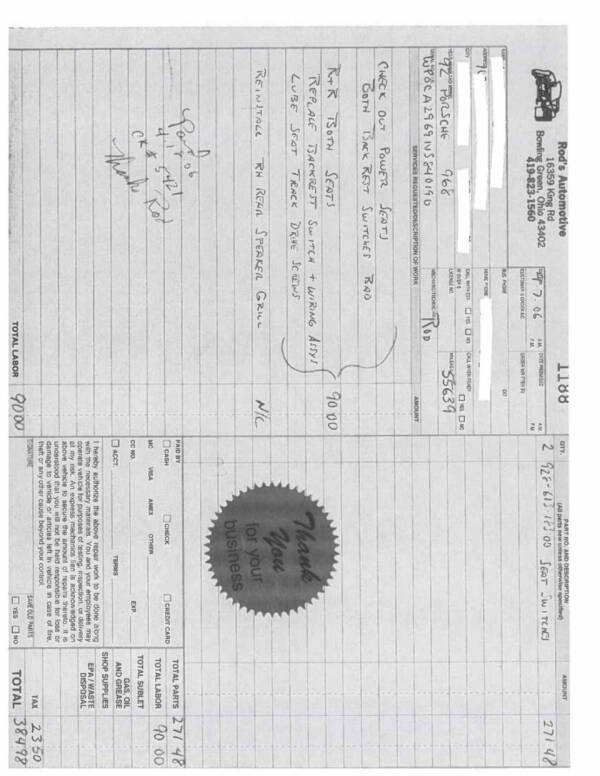 Rod's Automotive
16359 King Rd
Bowling Green, Ohio 43402
419-823-1560
1188
7.06
92 PORSCHE 968
MILEAGE 55639
ROD
SERVICES REQUESTED/DESCRIPTION OF WORK
AMOUNT
CHECK OUT POWER SEATS
BOTH BACK REST SWITCHES BAD
R+R BOTH SEATS
REPLACE BACKREST SWITCH + WIRING ASSYS
LUBE SEAT TRACK DRIVE SCREWS
90 00
REINSTALL RH REAR SPEAKER GRILL
N/C
Paid
CK #
Thanks
Rod
TOTAL LABOR
90 00
QTY.
PART NO. AND DESCRIPTION
(All parts new unless otherwise specified)
AMOUNT
2 SEAT SWITCHES
271 48
Thank
You
for your
business
PAID BY
CASH
CHECK
CREDIT CARD
MC VISA AMEX OTHER
CC NO.
EXP.
ACCT.
TERMS
I hereby authorize the above repair work to be done along
with the necessary materials. You and your employees may
operate vehicle for purposes of testing, inspection, or delivery
at my risk. An express mechanics lien is acknowledged on
above vehicle to secure the amount of repairs thereto. It is
understood that you will not be held responsible for loss or
damage to vehicle or articles left in vehicle in case of fire,
theft or any other cause beyond your control.
SIGNATURE
SAVE OLD PARTS
YES NO
TOTAL PARTS 271 48
TOTAL LABOR 90 00
TOTAL SUBLET
GAS, OIL
AND GREASE
SHOP SUPPLIES
EPA / WASTE
DISPOSAL
TAX 23 50
TOTAL 384 98